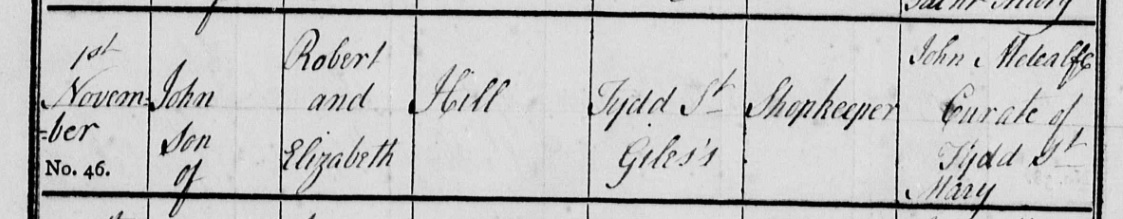 Saint Mary
1st
Novem-
=ber
No. 46.
John
son
of
Robert
and
Elizabeth
Hill
Tydd St
Giles's
Shopkeeper
John Metcalfe
Curate of
Tydd St
Mary